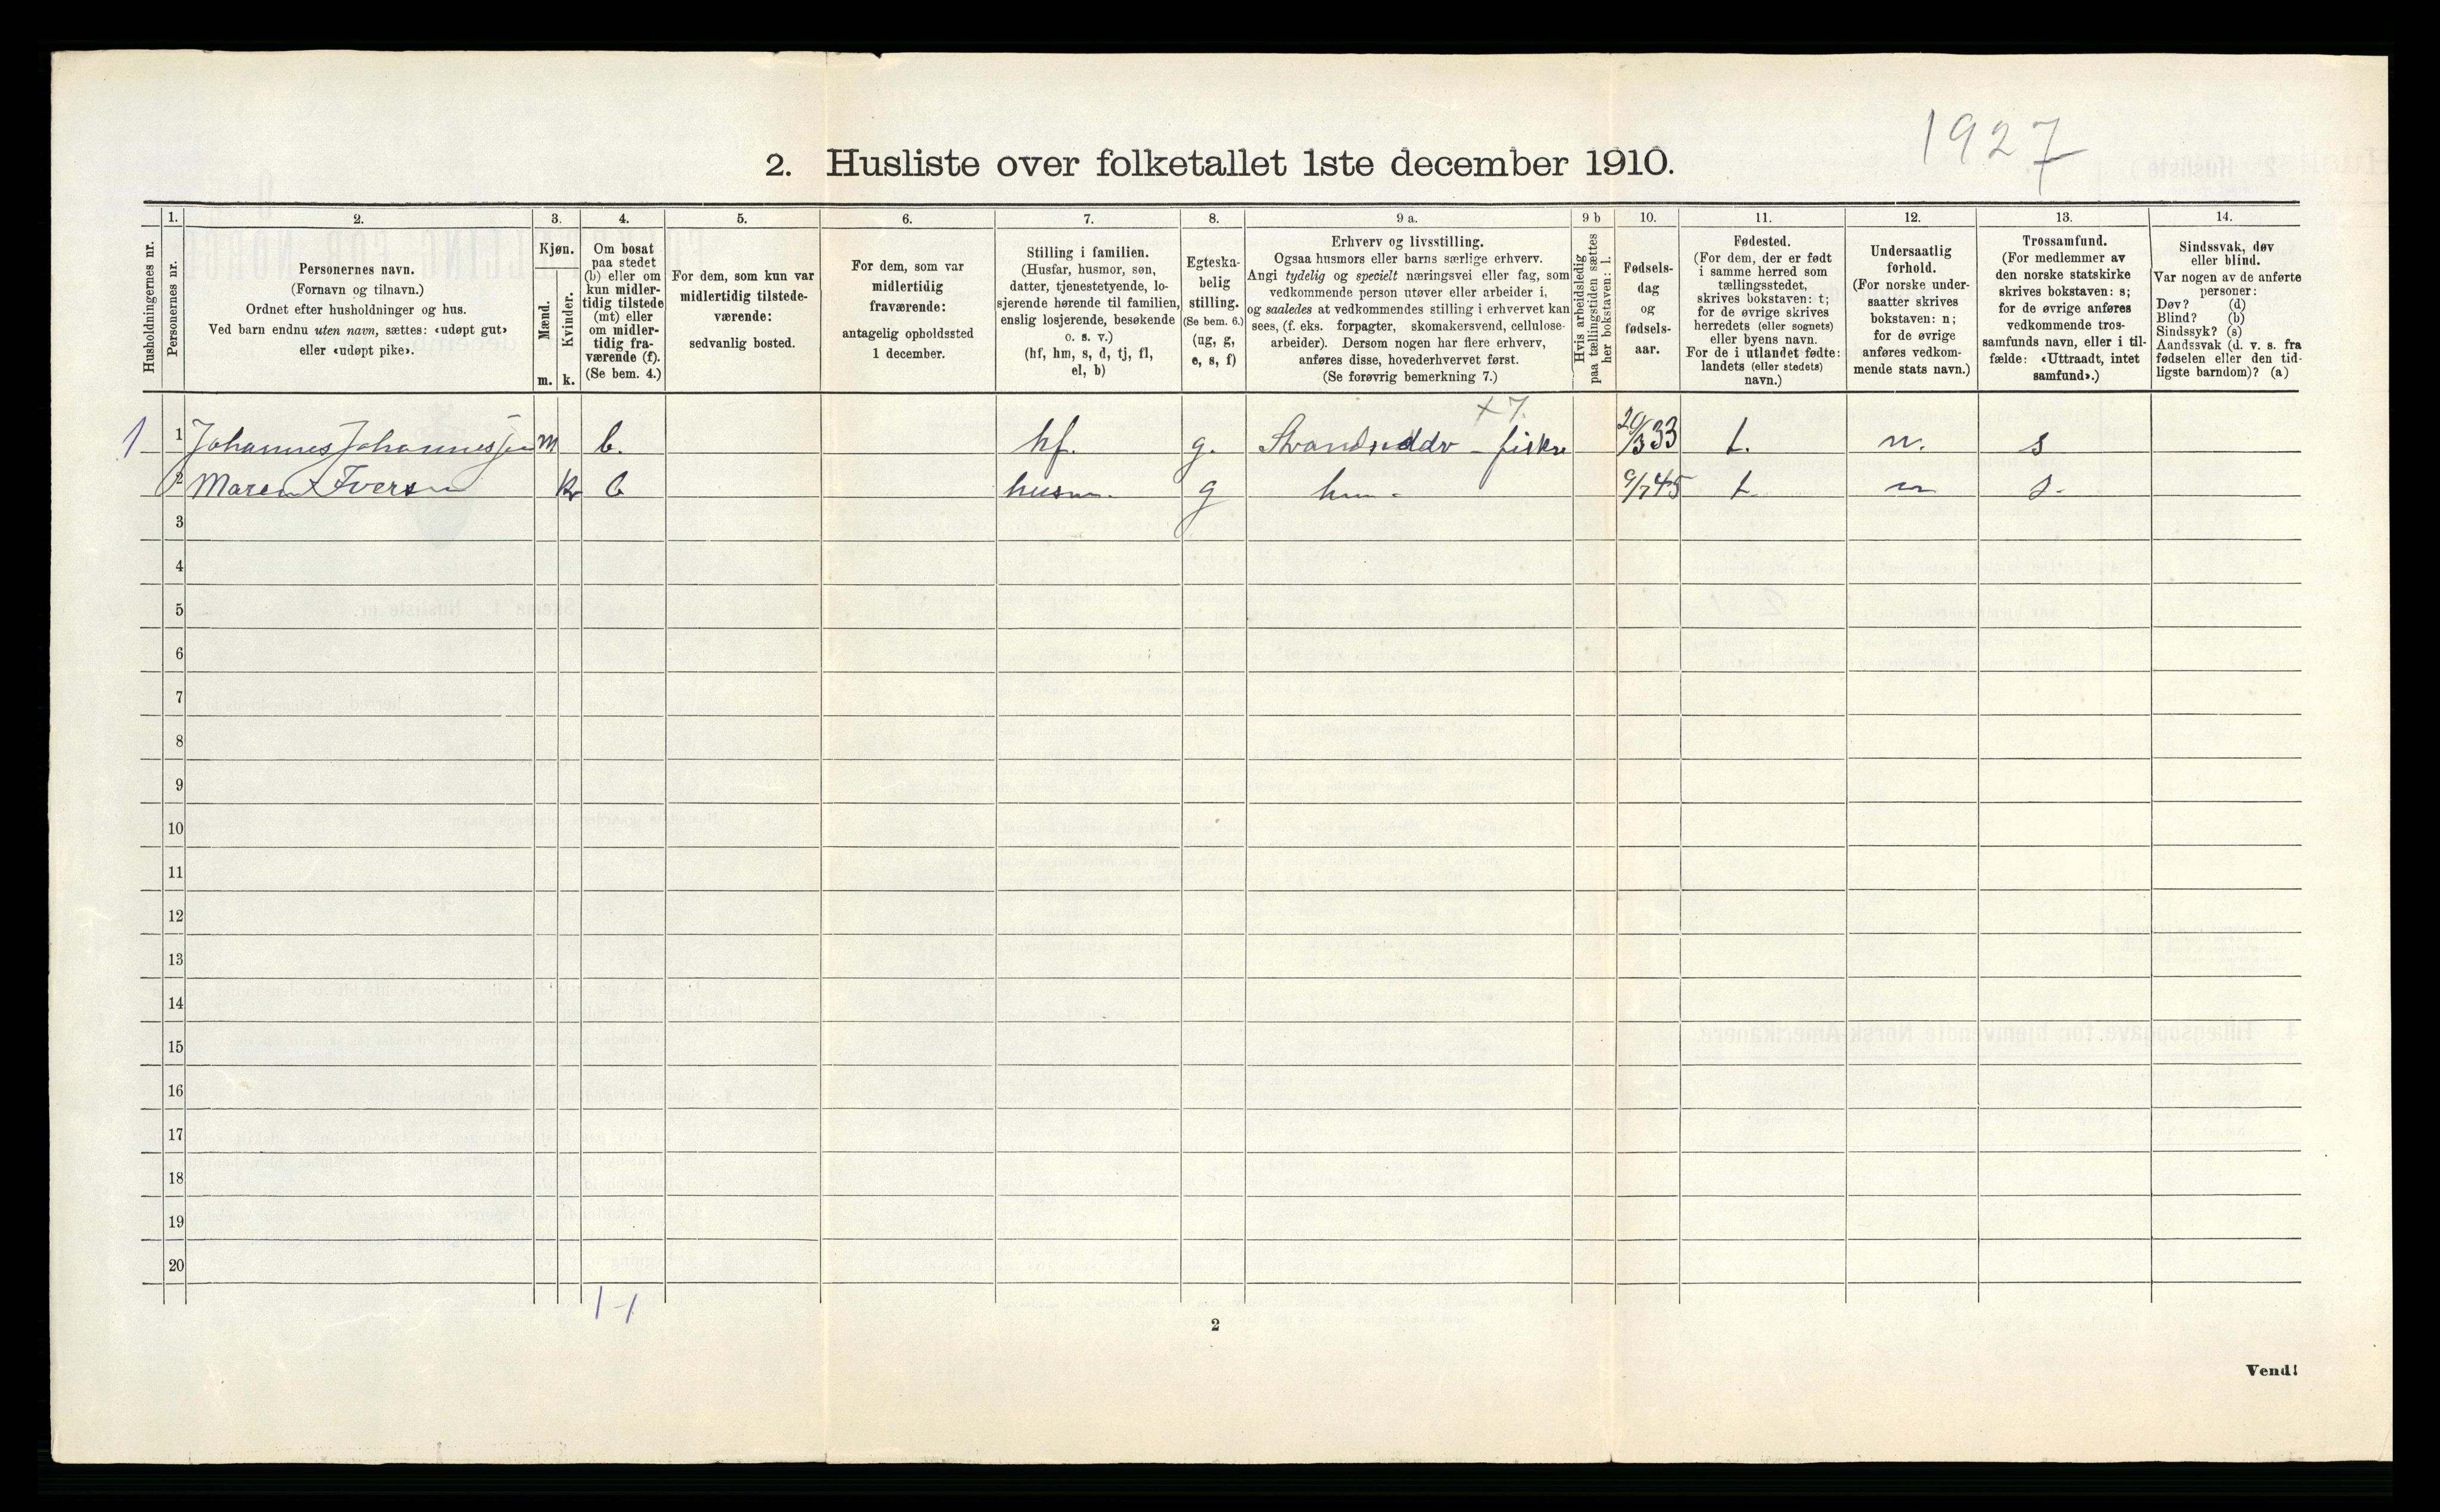 1927
2. Husliste over folketallet 1ste december 1910.
Husholdningernes nr.
1.
Personernes nr.
2.
Personernes navn.
(Fornavn og tilnavn.)
Ordnet efter husholdninger og hus.
Ved barn endnu uten navn, sættes: «udøpt gut»
eller «udøpt pike».
3.
Kjøn.
Mænd.
Kvinder.
m. k.
4.
Om bosat
paa stedet
(b) eller om
kun midler-
tidig tilstede
(mt) eller
om midler-
tidig fra-
værende (f).
(Se bem. 4.)
5.
For dem, som kun var
midlertidig tilstede-
værende:
sedvanlig bosted.
6.
For dem, som var
midlertidig
fraværende:
antagelig opholdssted
1 december.
7.
Stilling i familien.
(Husfar, husmor, søn,
datter, tjenestetyende, lo-
sjerende hørende til familien,
enslig losjerende, besøkende
o. s. v.)
(hf, hm, s, d, tj, fl,
el, b)
8.
Egteska-
belig
stilling.
(Se bem. 6.)
(ug, g,
e, s, f)
9 a.
Erhverv og livsstilling.
Ogsaa husmors eller barns særlige erhverv.
Angi tydelig og specielt næringsvei eller fag, som
vedkommende person utøver eller arbeider i,
og saaledes at vedkommendes stilling i erhvervet kan
sees, (f. eks. forpagter, skomakersvend, cellulose-
arbeider). Dersom nogen har flere erhverv,
anføres disse, hovederhvervet først.
(Se forøvrig bemerkning 7.)
9 b
Hvis arbeidsledig
paa tællingstiden sættes
her bokstaven: l.
10.
Fødsels-
dag
og
fødsels-
aar.
11.
Fødested.
(For dem, der er født
i samme herred som
tællingsstedet,
skrives bokstaven: t;
for de øvrige skrives
herredets (eller sognets)
eller byens navn.
For de i utlandet fødte:
landets (eller stedets)
navn.)
12.
Undersaatlig
forhold.
(For norske under-
saatter skrives
bokstaven: n;
for de øvrige
anføres vedkom-
mende stats navn.)
13.
Trossamfund.
(For medlemmer av
den norske statskirke
skrives bokstaven: s;
for de øvrige anføres
vedkommende tros-
samfunds navn, eller i til-
fælde: «Uttraadt, intet
samfund».)
14.
Sindssvak, døv
eller blind.
Var nogen av de anførte
personer:
Døv? (d)
Blind? (b)
Sindssyk? (s)
Aandssvak (d. v. s. fra
fødselen eller den tid-
ligste barndom)? (a)
+ 7.
1 1 Johannes Johannessen m b. hf. g. fisker 20/3 33 t. n. s
2 Maren Iversen k b husm. g 9/7 45 t n s.
3
4
5
6
7
8
9
10
11
12
13
14
15
16
17
18
19
20
1-1
2
Vend!